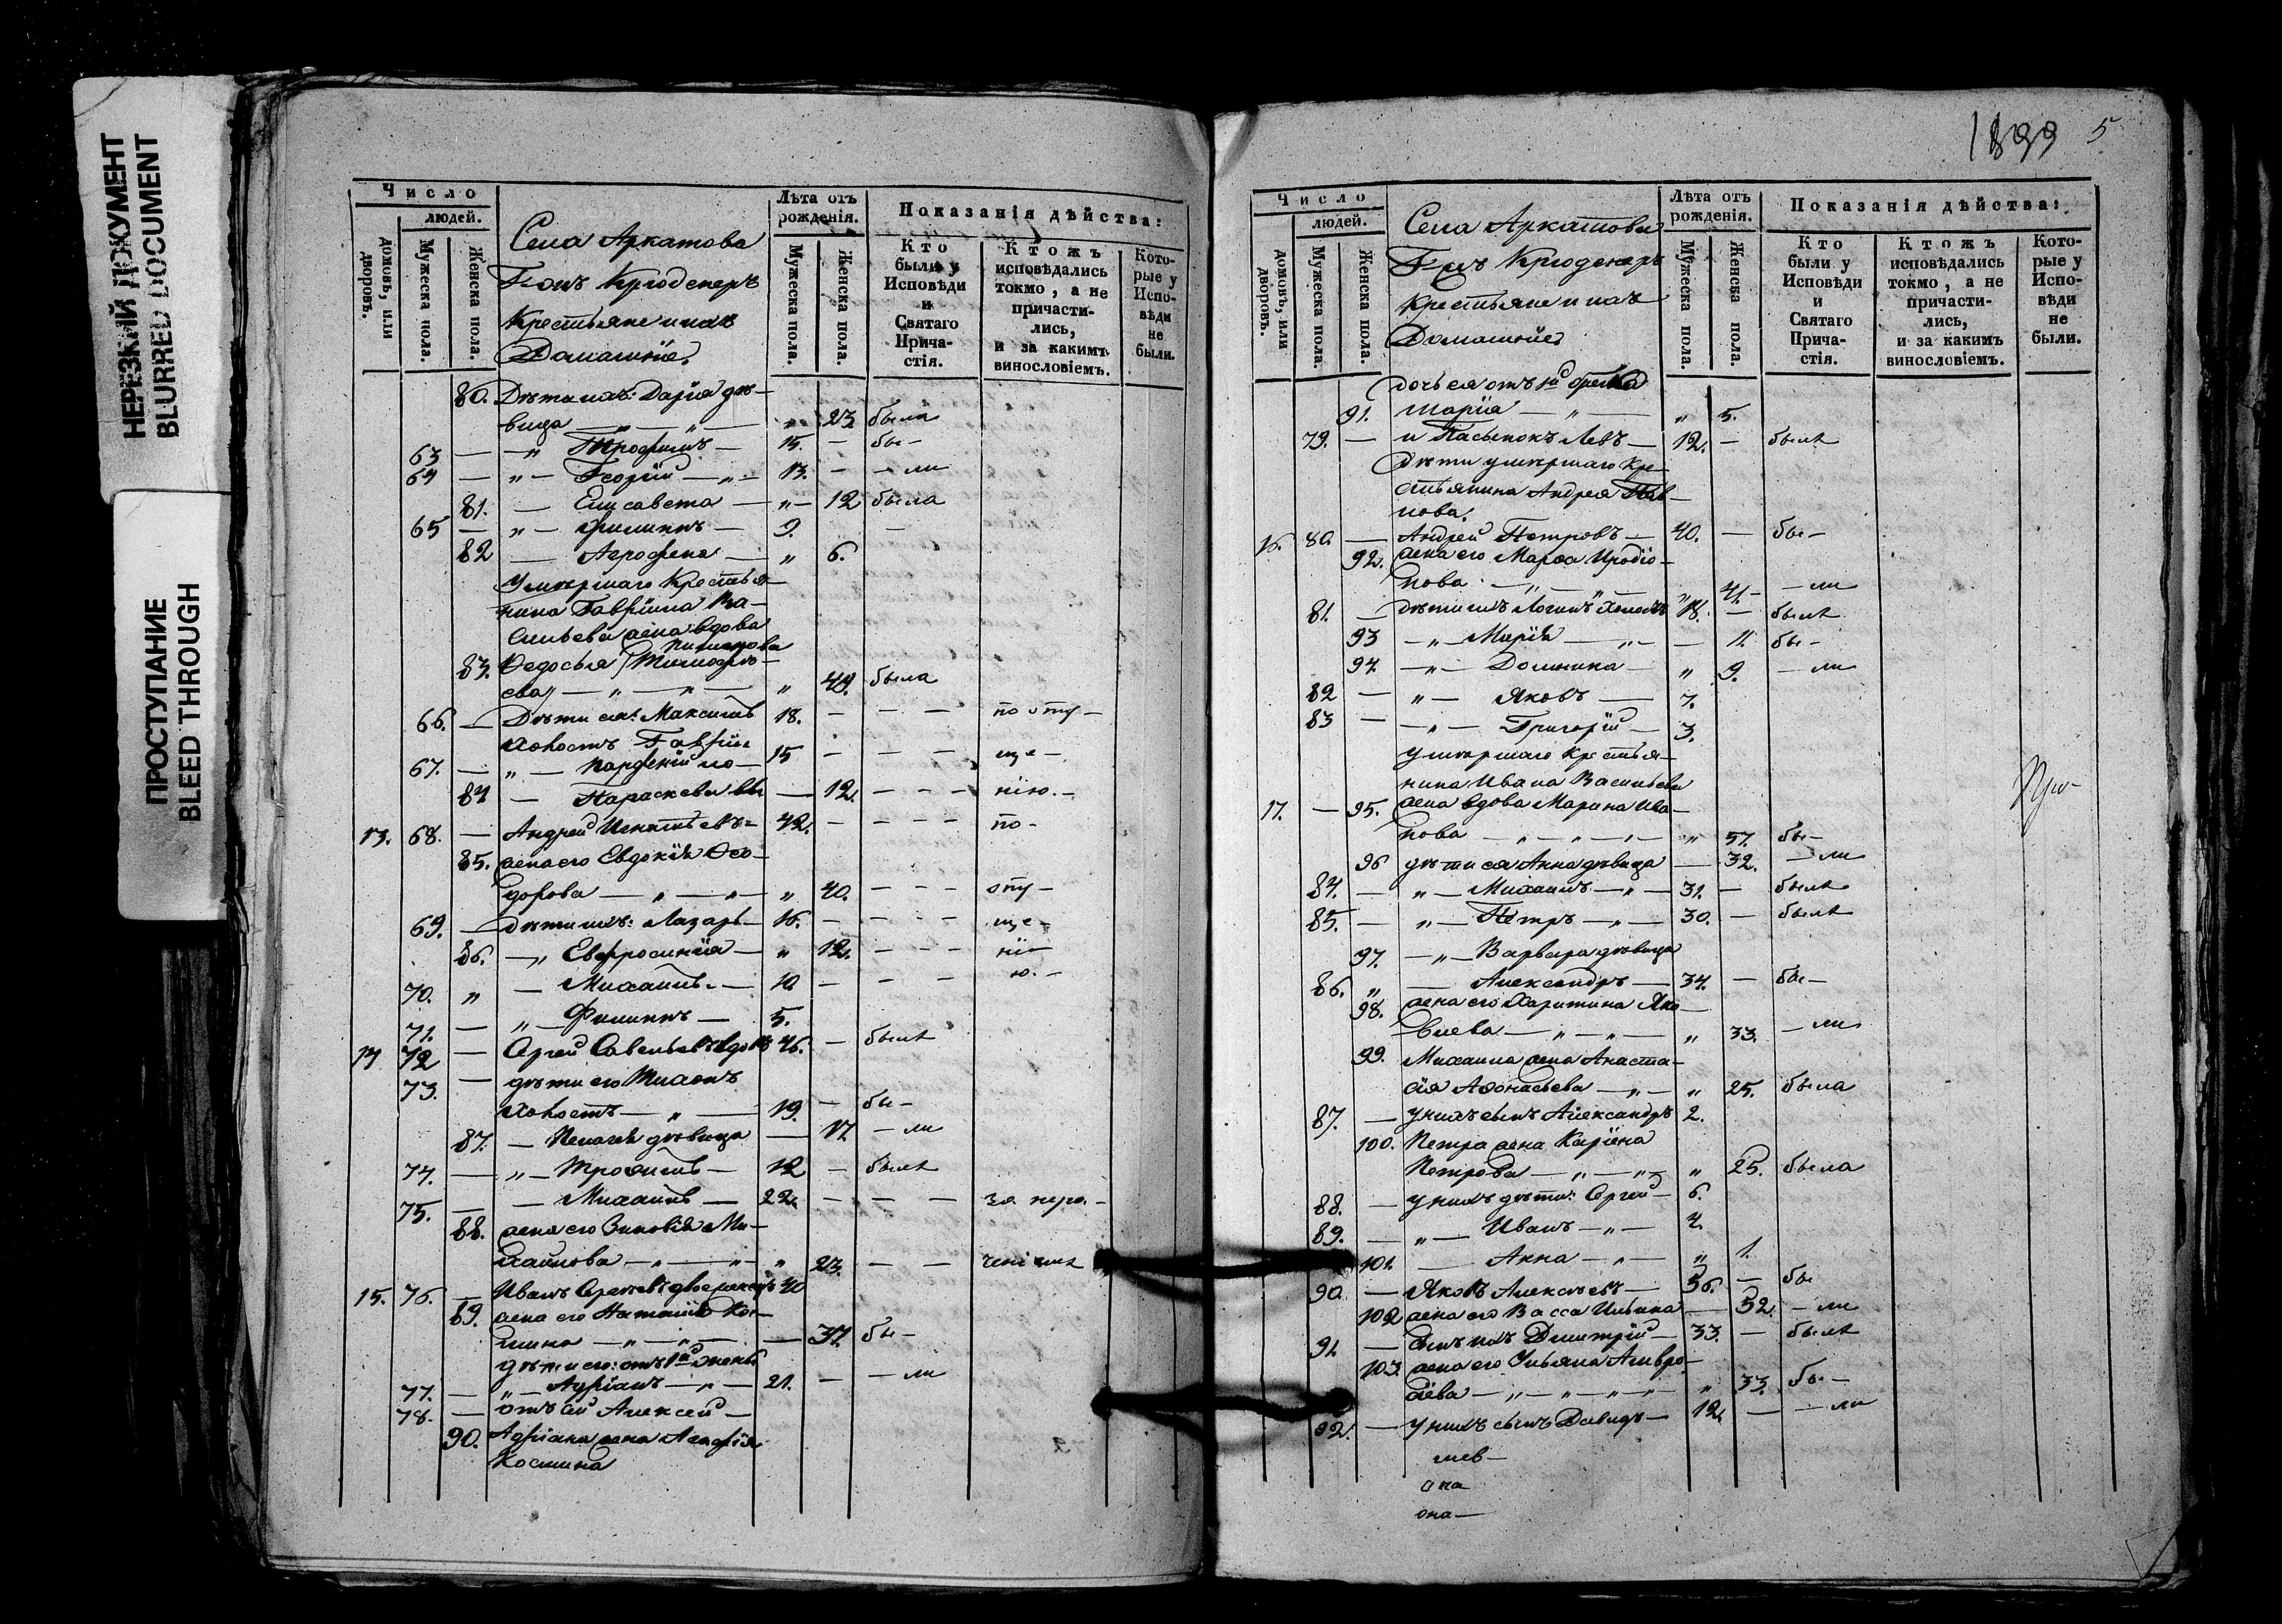 НЕРЕЗКИЙ ДОКУМЕНТ
BLURRED DOCUMENT
ПРОСТУПАНИЕ
BLEED THROUGH
Число
людей.
домовъ, или дворовъ.
Мужеска пола.
Женска пола.
Села Аркатова
Крестьяне и ихъ
Домашніе,
Лѣта отъ рожденія.
Мужеска пола.
Женска пола.
Показанія дѣйства:
Кто были у Исповѣди и Святаго Прича-стія.
Ктожъ исповѣдались токмо, а не причасти-лись, и за какимъ винословіемъ.
Кото-рые у Испо-вѣди не были.
80. Дѣти ихъ: Дарія дѣ-
вица — „ — „ 23 была
63 — „ Трофимъ — 15. — бы-
64 — „ — Георгій — „ — 13. — — ли
81. — Елисавета — „ — 12 была
65 — „ — Филиппъ — 9. —
82 — Агрофена — „ 6.
Умершаго Крестья-
нина Гавріила Ва-
сильева жена вдова
83. Ѳедосья Тимофѣ-
ева — „ — „ — „ 49. была
66. — Дѣти ея: Максимъ 18. — — — по опу-
холостъ
67. — „ — Парфеній 15 — — — ще-
84 — Параскева — 12. — — — нію. -
13. 68. — Андрей Игнатьевъ 42. — — — — по-
85. жена его Евдокія Ѳео-
дорова — „ — „ — „ 40. — — — опу-
69. — дѣти ихъ: Лазарь — 16. — — — — ще-
86. — „ Евфросинія — „ 12. — — — ні-
70. „ — Михаилъ — 10 — — — ю. -
71. — „ — Филиппъ — 5.
14 72 — Сергей Савельевъ вдовъ 46. — былъ
73. — дѣти его Тихонъ
холостъ — „ — 19. — бы-
87. — Пелагія дѣвица — 17. — ли
74. — „ — Трофимъ — 12 — былъ
75. — — Михаилъ — 22. — — — за неро-
88. жена его Зиновія Ми-
хайлова — „ — „ „ 23. — — ченіемъ
15. 76. — Иванъ Сергеевъ 40
89. жена его Наталія
— „ — „ — — 37. бы-
дѣти его: отъ 1й жены
77. — „ — Адріанъ — „ — 21. — — ли
78. — отъ Алексей —
90. Адріана жена Агафія
Космина
1899 5
Число
людей.
домовъ, или дворовъ.
Мужеска пола.
Женска пола.
Села Аркатова
Крестьяне и ихъ
Домашніе
Лѣта отъ рожденія.
Мужеска пола
Женска пола.
Показанія дѣйства:
Кто были у Исповѣди и Святаго Прича-стія.
Ктожъ исповѣдались токмо, а не причасти-лись, и за какимъ винословіемъ.
Кото-рые у Испо-вѣди не были.
дочь ея отъ 1й брака
91. Марія — „ — „ 5.
79. — и Пасынокъ Левъ — 12. — былъ
Дѣти умершаго Кре-
стьянина Андрея Пав-
лова.
16. 80. — Андрей Петровъ — 40. — бы-
92. жена его Марѳа Иродіо-
нова — „ — „ — „ 41. — ли
81. — дѣти ихъ Логинъ холостъ 18. — былъ
93 — „ — Марія — „ — — 11. бы-
94. — „ — Домника — „ 9. — ли
82 — „ — Яковъ — 7.
83 — — „ — Григорій — 3.
Умершаго Крестья-
нина Ивана Васильева
17. — 95. жена вдова Марина Ива-
нова — „ — „ — „ — „ 57. бы-
96 дѣти ея Анна дѣвица — 32. — ли
84. — „ — Михаилъ — „ — 31. — былъ
85. — „ — Петръ — „ — 30. — былъ
97. — „ — Варвара дѣвица
86. „ — Александръ — 34. — бы-
98. жена его Харитина Яко-
влева — „ — „ — „ 33. — ли
99. Михаила жена Анаста-
сія Афонасьева — „ — „ 25. была
87. — у нихъ сынъ Александръ 2.
100. Петра жена
Петрова — „ — „ — „ 25. была
88. — у нихъ дѣти: Сергей — 6.
89. — „ — Иванъ — „ — 4.
101. — Анна — „ — „ 1.
90. — Яковъ Алексѣевъ — 56. — бы
102 жена его Васса Ильина — 52. — ли
91. — сынъ ихъ Дмитрій — 33. — былъ
103. жена его Ульяна Амвро-
сіева — „ — „ — „ — „ 33. бы-
92. — у нихъ сынъ Давидъ — 12. — — ли